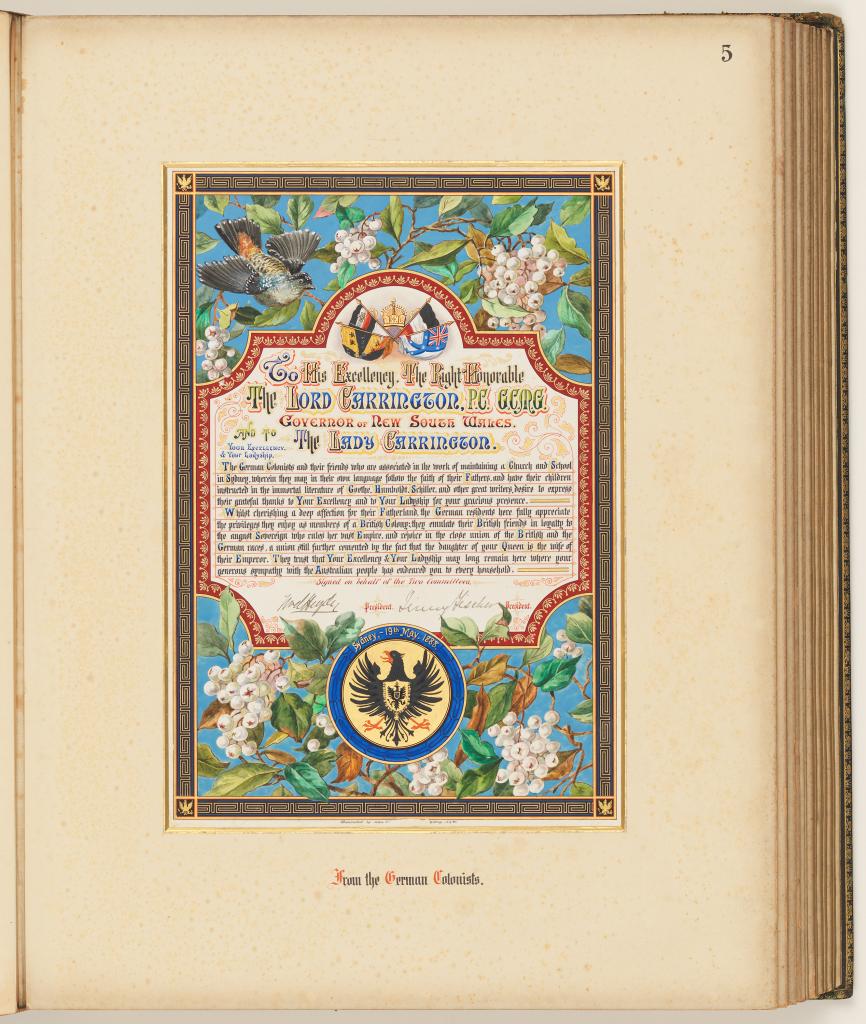 5
To His Excellency, The Right Honorable
The Lord Carrington, P.C. G.C.M.G.
Governor of New South Wales.
and to The Lady Carrington.
Your Excellency,
& Your Ladyship,
The German Colonists and their friends who are associated in the work of maintaining a Church and School
in Sydney, wherein they may in their own language follow the faith of their Fathers, and have their children
instructed in the immortal literature of Goethe, Humboldt, Schiller, and other great writers, desire to express
their grateful thanks to Your Excellency and to Your Ladyship for your gracious presence.
Whilst cherishing a deep affection for their Fatherland, the German residents here fully appreciate
the privileges they enjoy as members of a British Colony; they emulate their British friends in loyalty to
the august Sovereign who rules her vast Empire, and rejoice in the close union of the British and the
German races, a union still further cemented by the fact that the daughter of your Queen is the wife of
their Emperor. They trust that Your Excellency & Your Ladyship may long remain here where your
generous sympathy with the Australian people has endeared you to every household.
Signed on behalf of the Two Committees,
President. President.
Sydney, 19th May, 1888.
Illuminated by
From the German Colonists.